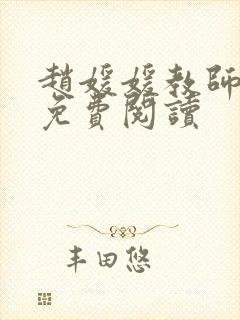 趙媛媛教師
免費閱讀
丰田悠